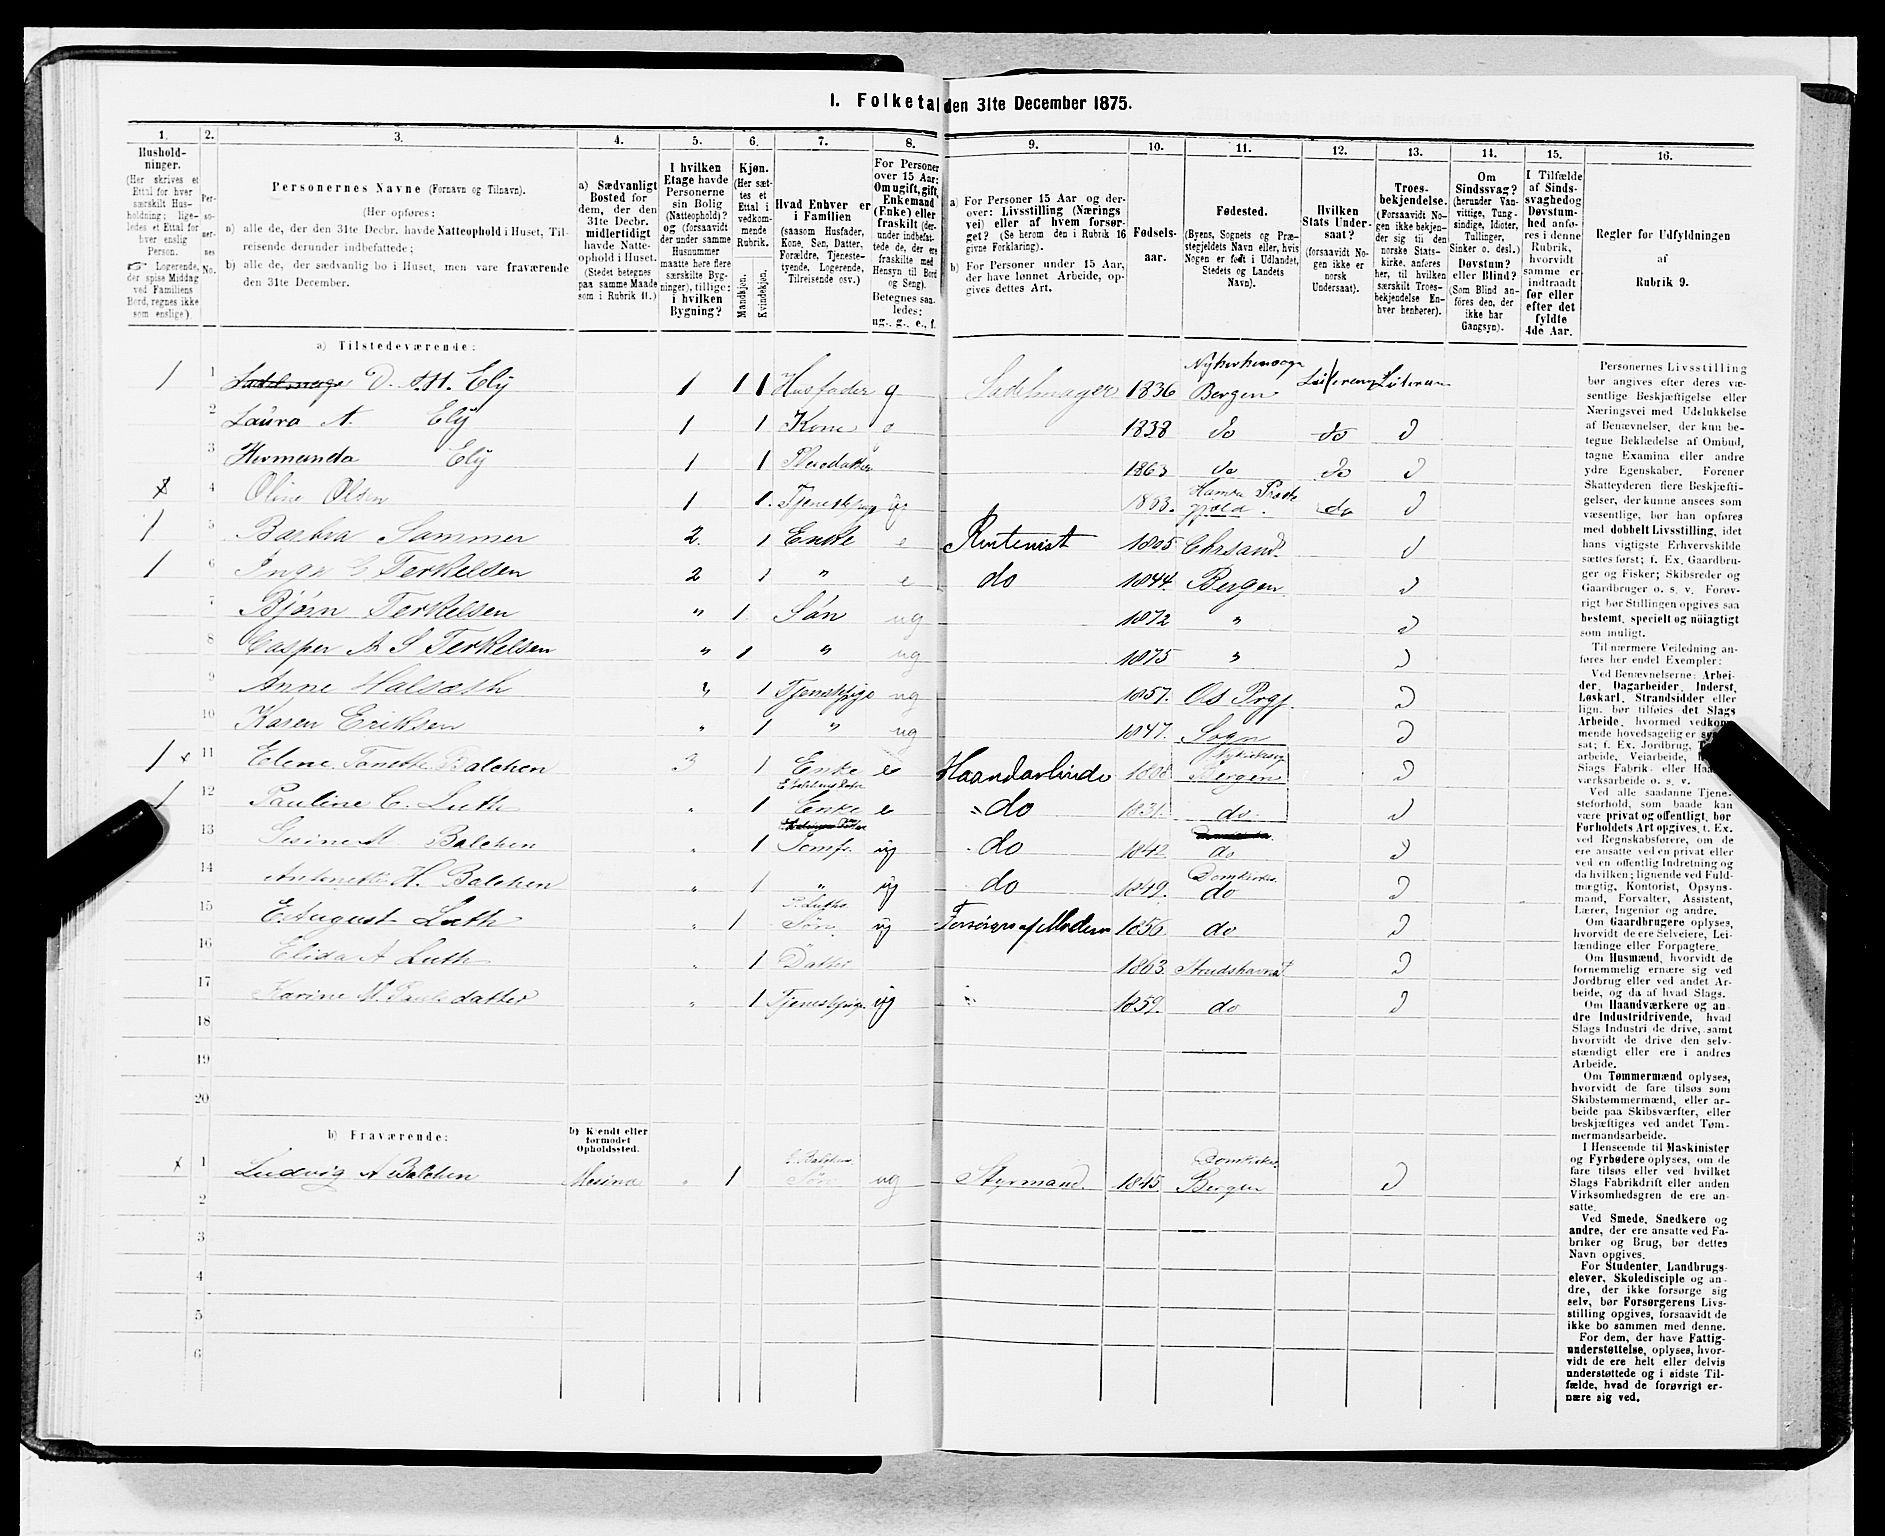 I. Folketal den 31te December 1875.
1. 2. 3. 4. 5. 6. 7. 8. 9. 10. 11. 12. 13. 14. 15. 16.
Hushold-
ninger.
(Her skrives et
Ettal for hver
særskilt Hus-
holdning; lige-
ledes et Ettal for
hver enslig
Person.
☞ Logerende,
der spise Middag
ved Familiens
Bord, regnes ikke
som enslige.)
Per-
so-
ner-
nes
No.
Personernes Navne (Fornavn og Tilnavn).
(Her opføres:
a) alle de, der den 31te Decbr. havde Natteophold i Huset, Til-
reisende derunder indbefattede;
b) alle de, der sædvanlig bo i Huset, men vare fraværende
den 31te December.
a) Sædvanligt
Bosted for
dem, der den
31te Decbr.
midlertidigt
havde Natte-
ophold i Huset.
(Stedet betegnes
paa samme Maade
som i Rubrik 11.)
I hvilken
Etage havde
Personerne
sin Bolig
(Natteophold)?
og (forsaavidt
der under samme
Husnummer
maatte høre flere
særskilte Byg-
ninger), tillige:
i hvilken
Bygning?
Kjøn.
(Her sæt-
tes et
Ettal i
vedkom-
mende
Rubrik.
Mandkjøn.
Kvindekjøn.
Hvad Enhver er
i Familien
(saasom Husfader,
Kone, Søn, Datter,
Forældre, Tjeneste-
tyende, Logerende,
Tilreisende osv.)
For Personer
over 15 Aar:
Om ugift, gift,
Enkemand
(Enke) eller
fraskilt (der-
under indbefat-
tede de, der ere
fraskilte med
Hensyn til Bord
og Seng).
Betegnes saa-
ledes:
ug., g., e., f.
a) For Personer 15 Aar og der-
over: Livsstilling (Nærings
vei) eller af hvem forsør-
get? (Se herom den i Rubrik 16
givne Forklaring).
b) For Personer under 15 Aar,
der have lønnet Arbeide, op-
gives dettes Art.
Fødsels-
aar.
Fødested.
(Byens, Sognets og Præ-
stegjeldets Navn eller, hvis
Nogen er født i Udlandet,
Stedets og Landets
Navn).
Hvilken
Stats Under-
saat?
(forsaavidt No-
gen ikke er
norsk
Undersaat).
Troes-
bekjendelse.
(Forsaavidt No-
gen ikke bekjen-
der sig til den
norske Stats-
kirke, anføres
her, til hvilken
særskilt Troes-
bekjendelse En-
hver henhører).
Om
Sindssvag?
(herunder Van-
vittige, Tung-
sindige, Idioter,
Tullinger,
Sinker o. desl.)
Døvstum?
eller Blind?
(Som Blind an-
føres den, der
ikke har
Gangsyn).
I Tilfælde
af Sinds-
svaghed og
Døvstum-
hed anfø-
res i denne
Rubrik,
hvorvidt
samme er
indtraadt
før eller
efter det
fyldte
4de Aar.
Regler for Udfyldningen
af
Rubrik 9.
a) Tilstedeværende:
1 1 D. A. M. Ely 1 1 1 Husfader g Sadelmager 1836 Nykirkensogn Bergen Luteran Luteran
2 Laura A. Ely 1 1 Kone 1838 do do D
3 Hermanda Ely 1 1 1863 do do D
4 Oline Olsen 1 1. ug 1853. Hamre do D
1 5 Barbra Sammer 2. 1 Enke e Rentenist 1805 Chrsand. D
1 6 Inga C Terkelsen 2 1 " e do 1844. Bergen D
7 Bjørn Terkelsen " 1. Søn ug 1872 " D
8 Casper A S Terkelsen " 1 " ug 1875 " D
9 Anne " 1 Tjenestpige ug 1857. Os Prgj. D
10 Karen Eriksen " 1 " ug 1847. Sogn D
1 x 11 Elene Balchen 3 1 Enke e Haandarbeide 1808 Nykirkesogn Bergen D
1 12 Pauline C. Luth " 1 E. Balchens Datter Enke e do 1831. do D
13 Gesine M. Balchen " 1 Jomfr. ug do 1842 do D
14 H. Balchen " 1 " ug do 1849. Domkirkes. do D
15 E August Luth " 1 P. Luths Søn ug Forsørges af Moderen 1856 do D
16 Elida A Luth " 1 Datter 1863. Strudshavn D
17 Karine M. Paulsdatter " 1 Tjenestpige ug " 1859. do D
18
19
20
b) Fraværende:
b) Kjendt eller
formodet
Opholdssted.
x 1 Ludvig A Balchen Mesina " 1 E Balchens Søn ug Styrmand. 1845. Domkirkes. Bergen D
2
3
4
5
6
Personernes Livsstilling
bør angives efter deres væ-
sentlige Beskjæftigelse eller
Næringsvei med Udelukkelse
af Benævnelser, der kun be-
tegne Beklædelse af Ombud,
tagne Examina eller andre
ydre Egenskaber. Forener
Skatteyderen flere Beskjæfti-
gelser, der kunne ansees som
væsentlige, bør han opføres
med dobbelt Livsstilling, idet
hans vigtigste Erhvervskilde
sættes først; f. Ex. Gaardbru-
ger og Fisker; Skibsreder og
Gaardbruger o. s. v. Forøv-
rigt bør Stillingen opgives saa
bestemt, specielt og nøiagtigt
som muligt.
Til nærmere Veiledning an-
føres her endel Exempler:
Ved Benævnelserne: Arbei-
der, Dagarbeider, Inderst,
Løskarl, Strandsidder eller
lign. bør tilføies det Slags
Arbeide, hvormed vedkom-
mende hovedsagelig er
sat; f. Ex. Jordbrug,
arbeide, Veiarbeide,
Slags Fabrik- eller
værksarbeide o. s. v.
Ved alle saadanne Tjene-
steforhold, som baade kan
være privat og offentligt, bør
Forholdets Art opgives, f. Ex.
ved Regnskabsførere, om de
ere ansatte ved en privat eller
ved en offentlig Indretning og
da hvilken; lignende ved Fuld-
mægtig, Kontorist, Opsyns-
mand, Forvalter, Assistent,
Lærer, Ingeniør og andre.
Om Gaardbrugere oplyses,
hvorvidt de ere Selveiere, Lei-
lændinge eller Forpagtere.
Om Husmænd, hvorvidt de
fornemmelig ernære sig ved
Jordbrug eller ved andet Ar-
beide, og da af hvad Slags.
Om Haandværkere og an-
dre Industridrivende, hvad
Slags Industri de drive, samt
hvorvidt de drive den selv-
stændigt eller ere i andres
Arbeide.
Om Tømmermænd oplyses,
hvorvidt de fare tilsøs som
Skibstømmermænd, eller ar-
beide paa Skibsværfter, eller
beskjæftiges ved andet Tøm-
mermandsarbeide.
I Henseende til Maskinister
og Fyrbødere oplyses, om de
fare tilsøs eller ved hvilket
Slags Fabrikdrift eller anden
Virksomhedsgren de ere an-
satte.
Ved Smede, Snedkere og
andre, der ere ansatte ved Fa-
briker og Brug, bør dettes
Navn opgives.
For Studenter, Landbrugs-
elever, Skoledisciple og an-
dre, der ikke forsørge sig
selv, bør Forsørgerens Livs-
stilling opgives, forsaavidt de
ikke bo sammen med denne.
For dem, der have Fattig-
understøttelse, oplyses, hvor-
vidt de ere helt eller delvis
understøttede og i sidste Til-
fælde, hvad de forøvrigt er-
nære sig ved.